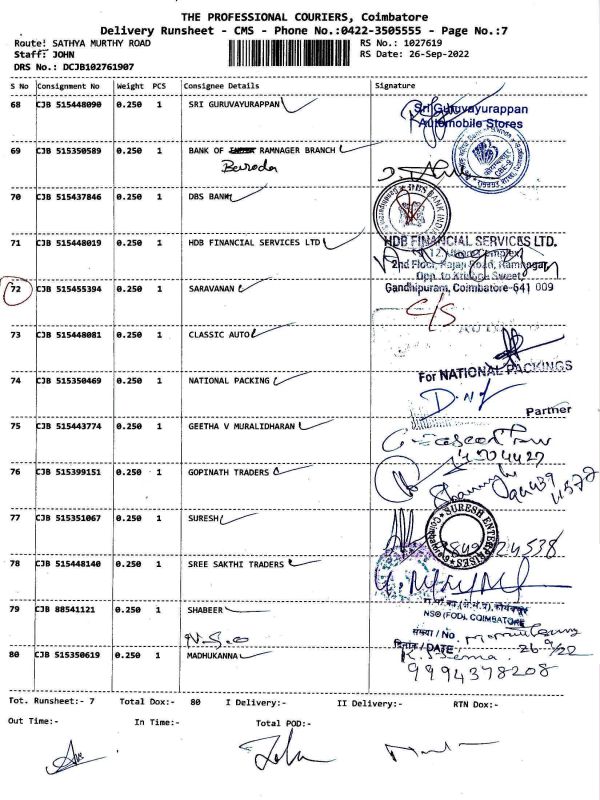 THE PROFESSIONAL COURIERS, Coimbatore
Delivery Runsheet - CMS - Phone No.:0422-3505555 - Page No.:7
Route: SATHYA MURTHY ROAD RS No.: 1027619
Staff: JOHN RS Date: 26-Sep-2022
DRS No.: DCJB102761907
S No Consignment No Weight PCS Consignee Details Signature
68 CJB 515448090 0.250 1 SRI GURUVAYURAPPAN
Sri Guruvayurappan
Automobile Stores
69 CJB 515350589 0.250 1 BANK OF RAMNAGER BRANCH
Baroda
70 CJB 515437846 0.250 1 DBS BANK
DBS BANK INDIA
71 CJB 515448019 0.250 1 HDB FINANCIAL SERVICES LTD
HDB FINANCIAL SERVICES LTD.
2nd Floor, Rajaji Road, Ramnagar,
Opp. to Krishna Sweet
72 CJB 515455394 0.250 1 SARAVANAN
Gandhipuram, Coimbatore-641 009
C/S
73 CJB 515448081 0.250 1 CLASSIC AUTO
74 CJB 515350469 0.250 1 NATIONAL PACKING
For NATIONAL PACKINGS
Partner
75 CJB 515443774 0.250 1 GEETHA V MURALIDHARAN
76 CJB 515399151 0.250 1 GOPINATH TRADERS
77 CJB 515351067 0.250 1 SURESH
SURESH ENTERPRISES
78 CJB 515448140 0.250 1 SREE SAKTHI TRADERS
79 CJB 88541121 0.250 1 SHABEER
NSO (FOD), COIMBATORE
N.S.O
संख्या / No.
दिनांक / DATE 26/9/22
80 CJB 515350619 0.250 1 MADHUKANNA
9994378208
Tot. Runsheet:- 7 Total Dox:- 80 I Delivery:- II Delivery:- RTN Dox:-
Out Time:- In Time:- Total POD:-